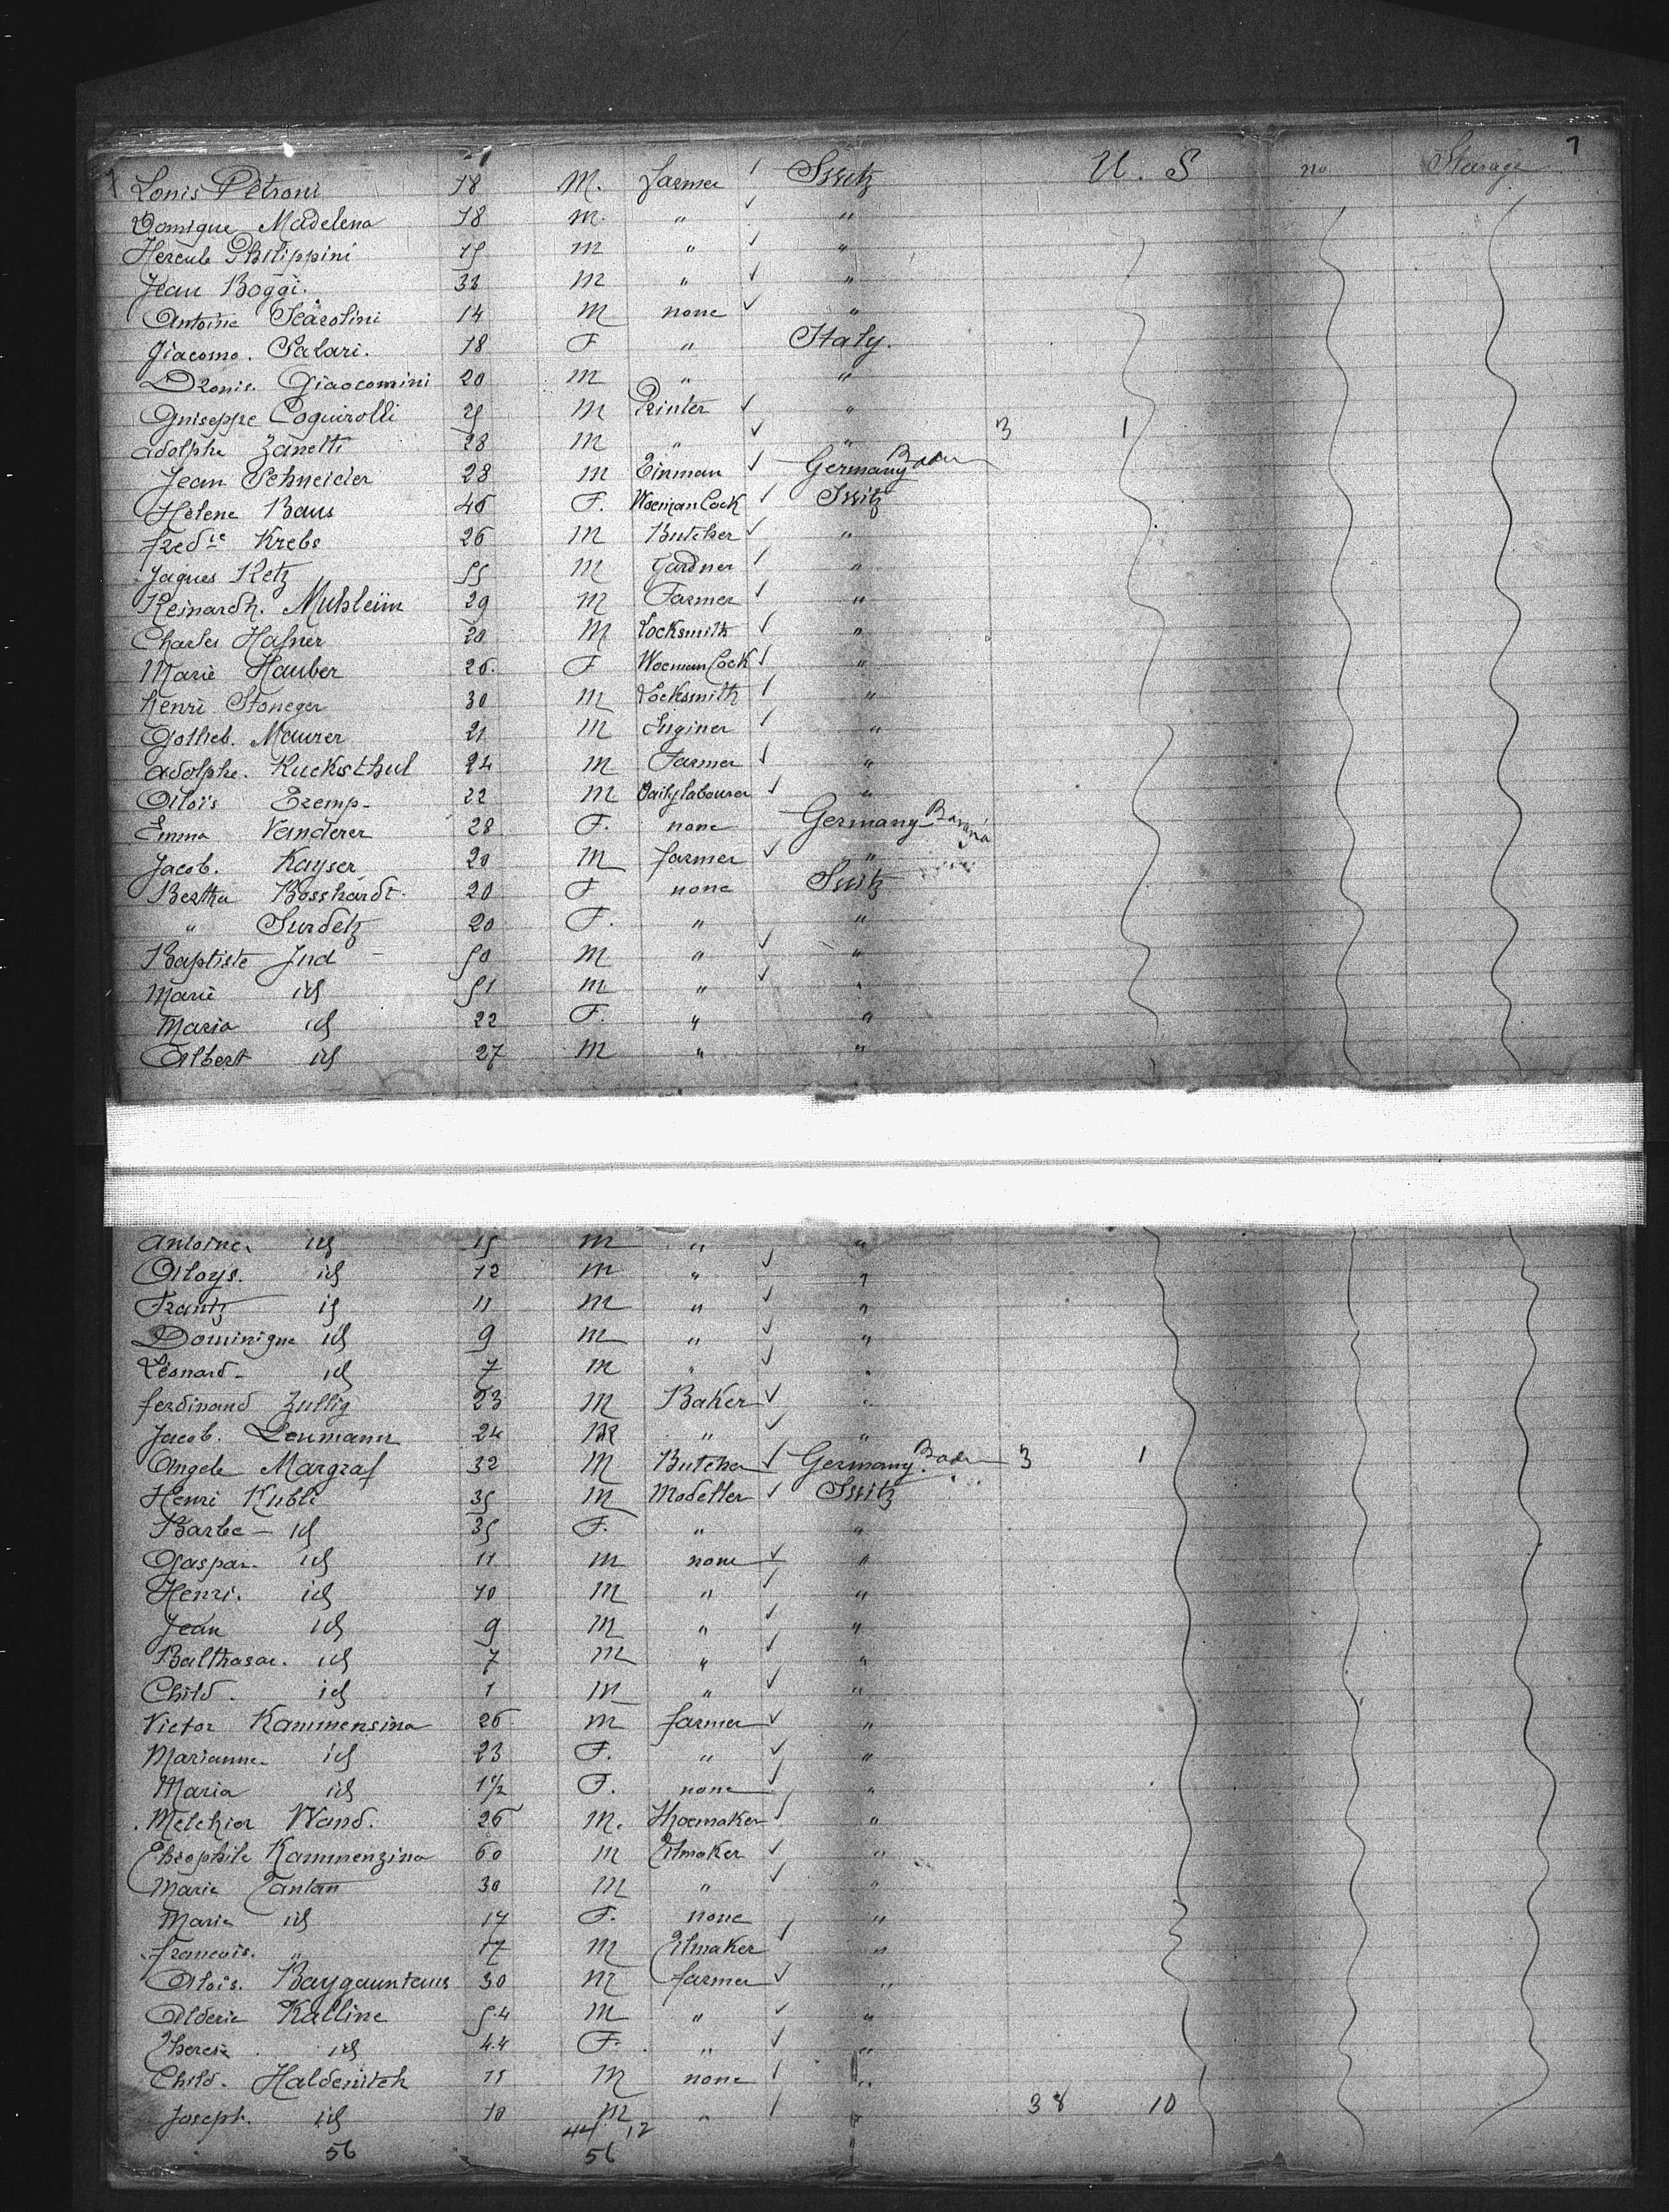 1 Louis Petroni 18 M. farmer Switz U. S no Steerage 7
Domique Madelena 18 m. " "
Hercule Philippini 15 m " "
Jean Boggi. 33 m " "
Antoine Scarolini 14 M none "
Giacomo. Salari. 18 F " Italy.
Dzonis. Giaocomini 20 m " "
Guiseppe Coquirolli 25 M Printer "
adolphe Zanetti 28 m " " 3 1
Jean Schneider 28 m Tinman Germany Baden
Helene Baus 45 F. Woeman Cock Switz
fredic Krebs 26 M Butcher "
Jaques Retz 55 M Gardner "
Reinardh. Muhleim 29 M Farmer "
Charles Hafner 20 M Locksmith "
Marie Hauber 26. F Woeman Cock "
Henri Stoneger 30 M Locksmith "
Gotlieb. Maurer 21 M Enginer "
adolphe. Kuckisthul 24 m Farmer "
Aloïs Eremp- 22 M Dailylabourer "
Emma Vanderer 28 F. none Germany Bavaria
Jacob. Kayser 20 M farmer "
Bertha Bosshardt 20 F none Switz
" Surdetz 20 F. " "
Baptiste Jud 50 M " "
Marie id 51 m " "
Maria id 22 F. " "
Albert id 27 M " "
Antoine. id 15 m " "
Aloys. id 12 m " "
Frantz id 11 m " "
Dominique id 9 m " "
Léonard- id 7 m " "
ferdinand Zullig 23 M Baker "
Jacob. Leumann 24 M " "
Angele Margraf 32 M Butcher Germany Baden 3 1
Henri Kubli 35 M Modeller Switz
Barbe - id 35 F. " "
Gaspar. id 11 m none "
Henri. id 10 M " "
Jean id 9 M " "
Balthasar. id 7 m " "
Child. id 1 m " "
Victor Kammensina 26 m farmer "
Marianne. id 23 F. " "
Maria id 1 1/2 F. none "
Melchior Wand. 26 M. Shoemaker "
Theophile Kammenzina 60 m Tilmaker "
Marie Tantan 30 M " "
Marie id 17 F. none "
francois. " 17 M Tilmaker "
Alois. Baygauntaus 30 M farmer "
Alderie Kalline 54 M " "
Therese. id 44 F. " "
Child. Haldenitch 11 M none "
Joseph. id 10 m " " 38 10
44 12
56 56